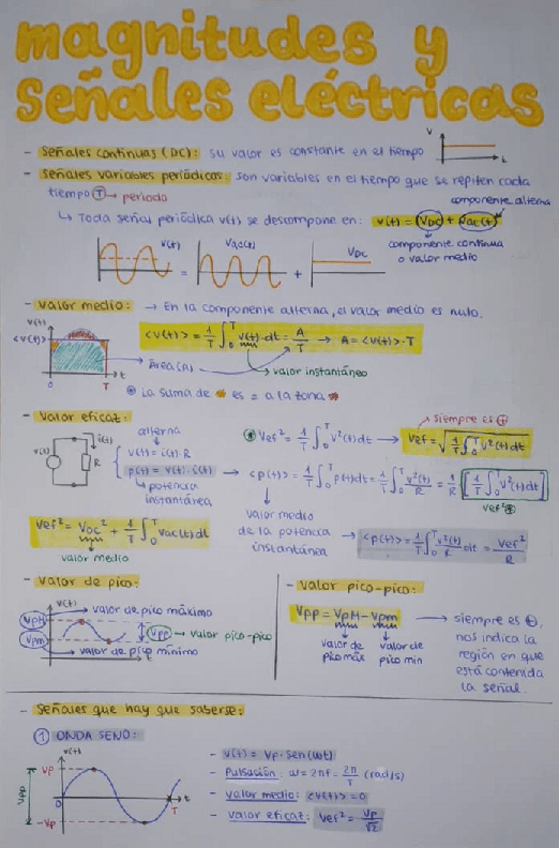 magnitudes y
señales eléctricas
- Señales continuas (DC): su valor es constante en el tiempo
V
t
- Señales variables periódicas: son variables en el tiempo que se repiten cada
tiempo T → periodo
componente alterna
↳ Toda señal periódica v(t) se descompone en: v(t) = VDC + vac(t)
componente continua
o valor medio
v(t) = Vac(t) + VDC
- Valor medio: → En la componente alterna, el valor medio es nulo.
v(t)
<v(t)>
<v(t)> = 1/T ∫₀ᵀ v(t)·dt = A/T → A = <v(t)>·T
0 T t
Área (A)
valor instantáneo
La suma de es = a la zona
- Valor eficaz:
siempre es ⊕
alterna
i(t)
v(t)
R
v(t) = i(t)·R
p(t) = v(t)·i(t)
potencia
instantánea
Vef² = 1/T ∫₀ᵀ v²(t)dt → Vef = √(1/T ∫₀ᵀ v²(t)dt)
→ <p(t)> = 1/T ∫₀ᵀ p(t)dt = 1/T ∫₀ᵀ v²(t)/R = 1/R [1/T ∫₀ᵀ v²(t)dt]
Vef²
valor medio
de la potencia
instantánea
→ <p(t)> = 1/T ∫₀ᵀ v²(t)/R dt = Vef²/R
Vef² = VDC² + 1/T ∫₀ᵀ vac(t)dt
valor medio
- Valor de pico:
v(t)
VpM
valor de pico máximo
Vpp → valor pico-pico
Vpm
valor de pico mínimo
t
- Valor pico-pico:
Vpp = VpM - Vpm
valor de
pico máx
valor de
pico min
→ siempre es ⊕,
nos indica la
región en que
está contenida
la señal.
- Señales que hay que saberse:
① ONDA SENO:
v(t)
Vp
Vpp
0
-Vp
T
t
- v(t) = Vp·sen(ωt)
- Pulsación: ω = 2πf = 2π/T (rad/s)
- valor medio: <v(t)> = 0
- valor eficaz: Vef² = Vp/√2